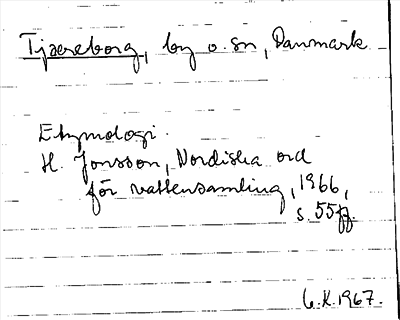 Tjæreborg, by o. sn, Danmark
Etymologi.
H. Jonsson, Nordiska ord
för vattensamling, 1966,
s. 55ff.
G.K. 1967.